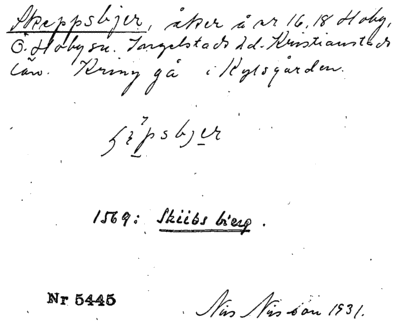 Skeppsbjer, åker å nr 16, 18 Hoby,
Ö. Hoby sn. Ingelstads hd. Kristianstads
län. Kring gå i Kylsgården.
1569: Skiibs bierg.
Nr 5445
Nils Nilsson 1931.